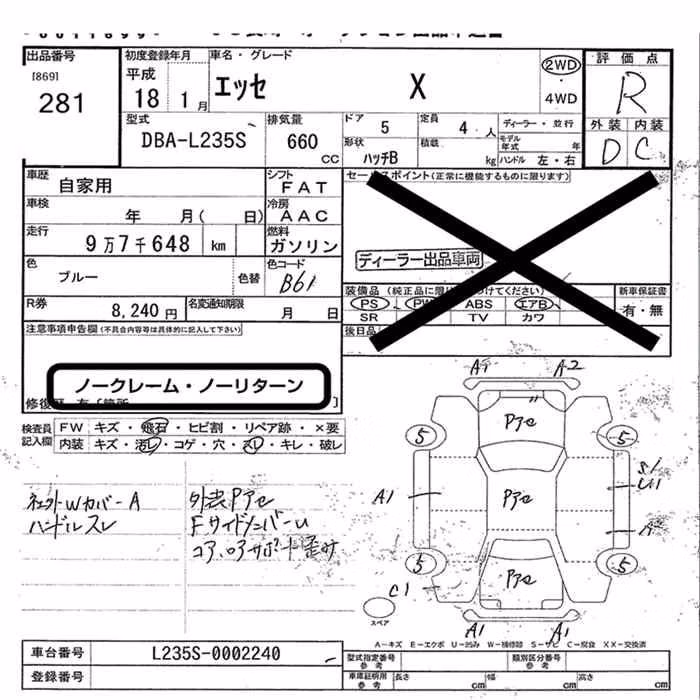 出品番号
[869]
281
初度登録年月
平成
18 1月
車名・グレード
エッセ X
2WD
・
4WD
評価点
R
外装 内装
D C
型式
DBA-L235S
排気量
660
CC
ドア 5
定員 4 人
ディーラー・並行
形状
ハッチB
積載 kg
モデル年式 年
ハンドル 左・右
車歴
自家用
シフト
FAT
セールスポイント(正常に機能するものに限ります)
車検
年 月( 日)
冷房
AAC
走行
9万7千648 km
燃料
ガソリン
ディーラー出品車両
色
ブルー
色替
色コード
B61
装備品(純正品に限り つけてください)
新車保証書
PS PW ABS エアB
SR TV カワ
有・無
R券
8,240円
名変通知期限
月 日
後日品
注意事項申告欄(不具合内容等は具体的に記入して下さい)
ノークレーム・ノーリターン
修復歴 有[箇所 ]
検査員
記入欄
FW キズ・飛石・ヒビ割・リペア跡・×要
内装 キズ・汚レ・コゲ・穴・スレ・キレ・破レ
A1 A2
Pアセ
5 5
A1
Pアセ
S1
U1
A
5 5
Pアセ
C1
スペア
A1 A1
外装Pアセ
ハンドルスレ
FサイドメンバーU
コア、ロアサポート歪み
A-キズ E-エクボ U-凹み W-補修跡 S-サビ C-腐食 XX-交換済
車台番号 L235S-0002240
登録番号
型式指定番号
参考
類別区分番号
参考
車庫証明用
参考
長さ cm 幅 cm 高さ cm